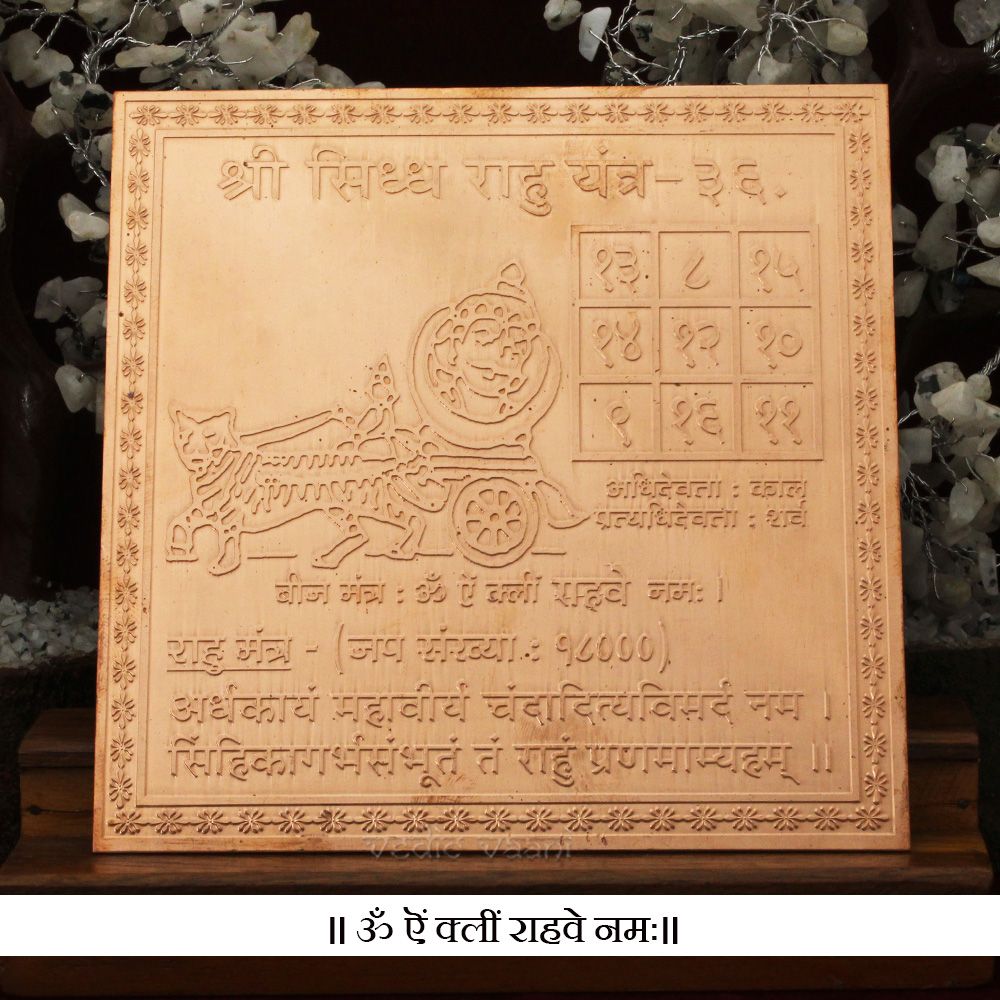 श्री सिध्ध राहु यंत्र - ३६.
१३ ८ १५
१४ १२ १०
९ १६ ११
अधिदेवता : काल
प्रत्यधिदेवता : शर्व
बीज मंत्र : ॐ ऐं क्लीं राहवे नमः ।
राहु मंत्र - (जप संख्या : १८०००)
अर्धकायं महावीर्यं चंदादित्यविमर्दं नम ।
सिंहिकागर्भसंभूतं तं राहुं प्रणमाम्यहम् ॥
vedic vaani
॥ ॐ ऐं क्लीं राहवे नमः॥